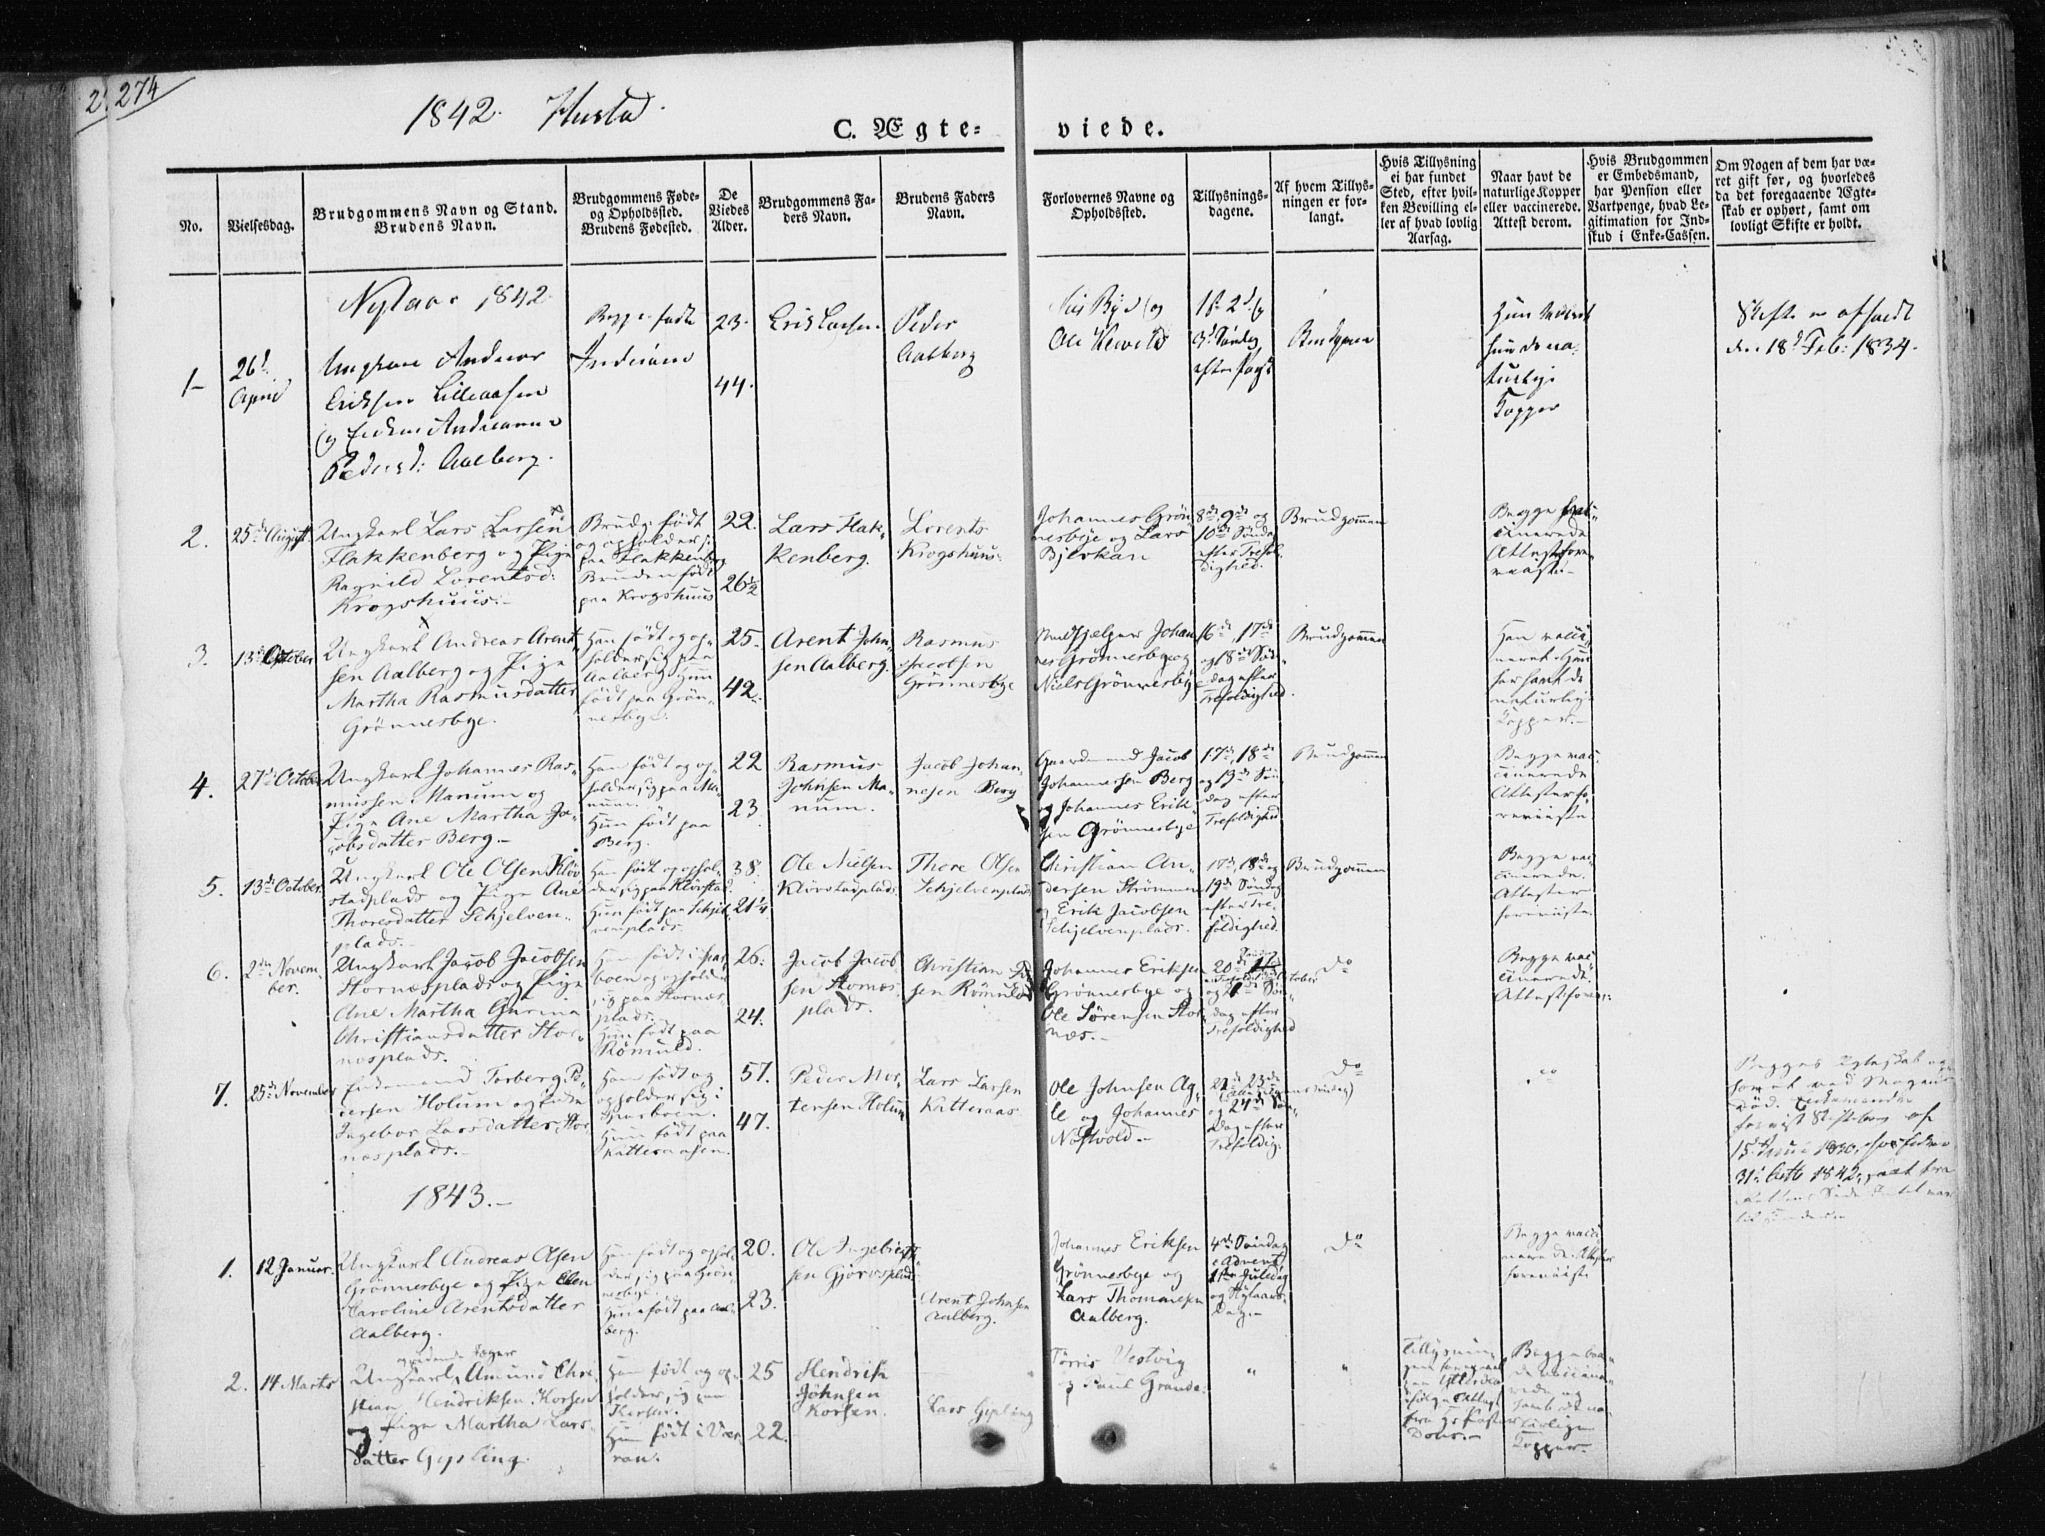 274
1842. Hustad
C. Ægte= viede.
No.
Vielsesdag.
Brudgommens Navn og Stand.
Brudens Navn.
Brudgommens Føde=
og Opholdssted.
Brudens Fødested.
De
Viedes
Alder.
Brudgommens Fa=
ders Navn.
Brudens Faders
Navn.
Forlovernes Navne og
Opholdssted.
Tillysnings=
dagene.
Af hvem Tillys=
ningen er for=
langt.
Hvis Tillysning
ei har fundet
Sted, efter hvil=
ken Bevilling el=
ler af hvad lovlig
Aarsag.
Naar havt de
naturlige Kopper
eller vaccinerede.
Attest derom.
Hvis Brudgommen
er Embedsmand,
har Pension eller
Vartpenge, hvad Le=
gitimation for Ind=
skud i Enke=Cassen.
Om Nogen af dem har væ=
ret gift før, og hvorledes
da det foregaaende Ægte=
skab er ophørt, samt om
lovligt Skifte er holdt.
Nytaar 1842
1
26d
April
Ungkarl Andreas
Eriksen Lilleaasen
og Enken Andreanna
Pedersd: Aalberg.
Begge fødte
Inderøen
23.
44.
Erik Larsen
Peder
Aalberg
Nils Bye og
Ole
1st 2d og
3d Søndag
efter Paaske
Brudgommen
Hun
de na-
turlige
Kopper
Skifte er afholdt
den 18d Feb: 1834.
2.
25de August
Ungkarl Lars Larsen
Flakkenberg og Pige
Ragnild Lorentsd:
Krogshuus.-
Brudg: født
og opholder sig
paa Flakkenberg
Bruden født
paa Krogshuus
22.
26 1/2
Lars Flak-
kenberg.
Lorents
Krogshuus.
Johannes Grön-
nesbye og Lars
Bjerkan
8de, 9de og
10de Söndag
efter Trefol-
dighed.
Brudgommen
Begge vac-
cinerede
Attest fore-
viist.-
3.
13de October
Ungkarl Andreas Arent-
sen Aalberg og Pige
Martha Rasmusdatter
Grönnesbye.
Han født og op-
holder sig paa
Aalberg Hun
født paa Grön-
nesbye.
25.
42.
Arent John-
sen Aalberg.
Rasmus
Jacobsen
Grönnesbye
Medhjelper Johan-
nes Grönnesbye og
Niels Grönnesbye
16de, 17de
og 18de Sön-
dag efter
Trefoldighed.
Brudgommen
Han vacci-
neret. Hun
har havt de
naturlige
Kopper.-
4.
27de October
Ungkarl Johannes Ras-
mussen Manum og
Pige Ane Martha Ja-
cobsdatter Berg.-
Han født og op-
holder sig paa Ma-
num.
Hun født paa
Berg.
22
23.
Rasmus
Johnsen Ma-
num.
Jacob Johan-
nesen Berg
Gaardmand Jacob
Johannessen Berg
og Johannes Erik-
sen Grönnesbye
17de, 18de
og 19de Sön-
dag efter
Trefoldighed
Brudgommen
Begge vac-
cinerede
Attester fo-
reviiste
5.
13de October.
Ungkarl Ole Olsen Klöv-
stadplads og Pige Ane
Thoresdatter Schjelven-
plads.-
Han født og ophol-
der sig paa Klövstad.
Hun født paa Schjel-
venplads.
38.
21 1/4
Ole Nielsen
Klövstadplads.
Thore Olsen
Schjelvenplads
Christian An-
dersen Strömmen
og Erik Jacobsen
Schjelvenplads.
17de, 18de og
19de Söndag
efter Tre-
foldighed.
Brudgommen
Begge vac-
cinerede.
Attester
foreviiste.
6.
2den Novem-
ber.
Ungkarl Jacob Jacobsen
Stornæsplads og Pige
Ane Martha Gurina
Christiansdatter Stor-
næsplads.
Han født i Spar-
boen og opholder
sig paa Stornæs-
plads.
Hun født paa
Römuld.
26.
24.
Jacob Jacob-
sen Stornæs-
plads.
Christian
sen Römuld
Johannes Eriksen
Grönnesbye og
Ole Sörensen Stor-
næs.-
20de
og 21de Sön-
dag efter
Trefoldighed
Do
Begge vac-
cinerede.
Attest forev:
7.
25de November
Enkemand Torberg Pe-
dersen Holum og Enke
Ingebor Larsdatter Stor-
næsplads.-
Han født og
opholder sig i
Sparboen.
Hun født paa
Katteraasen.
57.
47.
Peder Mor-
tensen Holum
Lars Larsen
Katteraas.
Ole Johnsen Ag-
le og Johannes
Nöstvold.-
22de 23de
og 24de Sön-
dag efter
Trefoldig.
Do
Do
Begges Ægteskab op-
hørt ved Magens
Död. Enkemanden
foreviist Skiftebrev af
15de Juni 1830,
31de Octb 1842,
1843.-
1.
12 Januar.
Ungkarl Andreas Olsen
Grönnesbye og Pige Elen
Caroline Arentsdatter
Aalberg.
Han født og ophol-
der sig paa Grön-
nesbye.
Hun født paa Aal-
berg.
20.
23.
Ole Ingebrigt-
sen Gjörvsplads
Arent Johnsen
Aalberg.
Johannes Eriksen
Grönnesbye og
Lars Thommesen
Aalberg.
4de Söndag
i Advent,
1ste Juledag
og Nytaars-
Dag.-
Do
Begge vacci-
nerede. Attester
foreviiste
2.
14 Marts
Ungkarl Amund Chri-
stian Hendriksen Korsen
og Pige Martha Lars-
datter Gipling.
Han født og op-
holder sig paa
Korsen.
Hun født i Vær-
ran.
25
22.
Hendrik
Johnsen
Korsen.
Lars Gipling
Törris Vestvig
og Paul Grande.
"
"
Tillysnin-
gen
paa Ytterøen
ifølge Attest
fra Hr Pastor
Dons.-
Begge baa-
de vaccine-
rede og
havt de na-
turlige
Kopper.